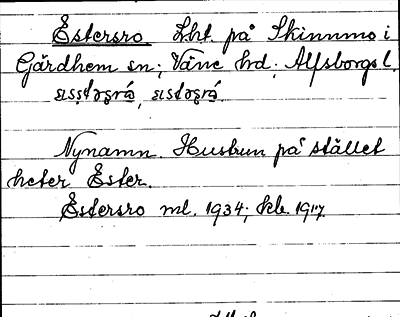 Estersro Lht. på Skinnmo i
Gärdhem sn; Väne hd; Älfsborgs l.
Nynamn. Hustrun på stället
heter Ester.
Estersro ml. 1934; kb. 1917